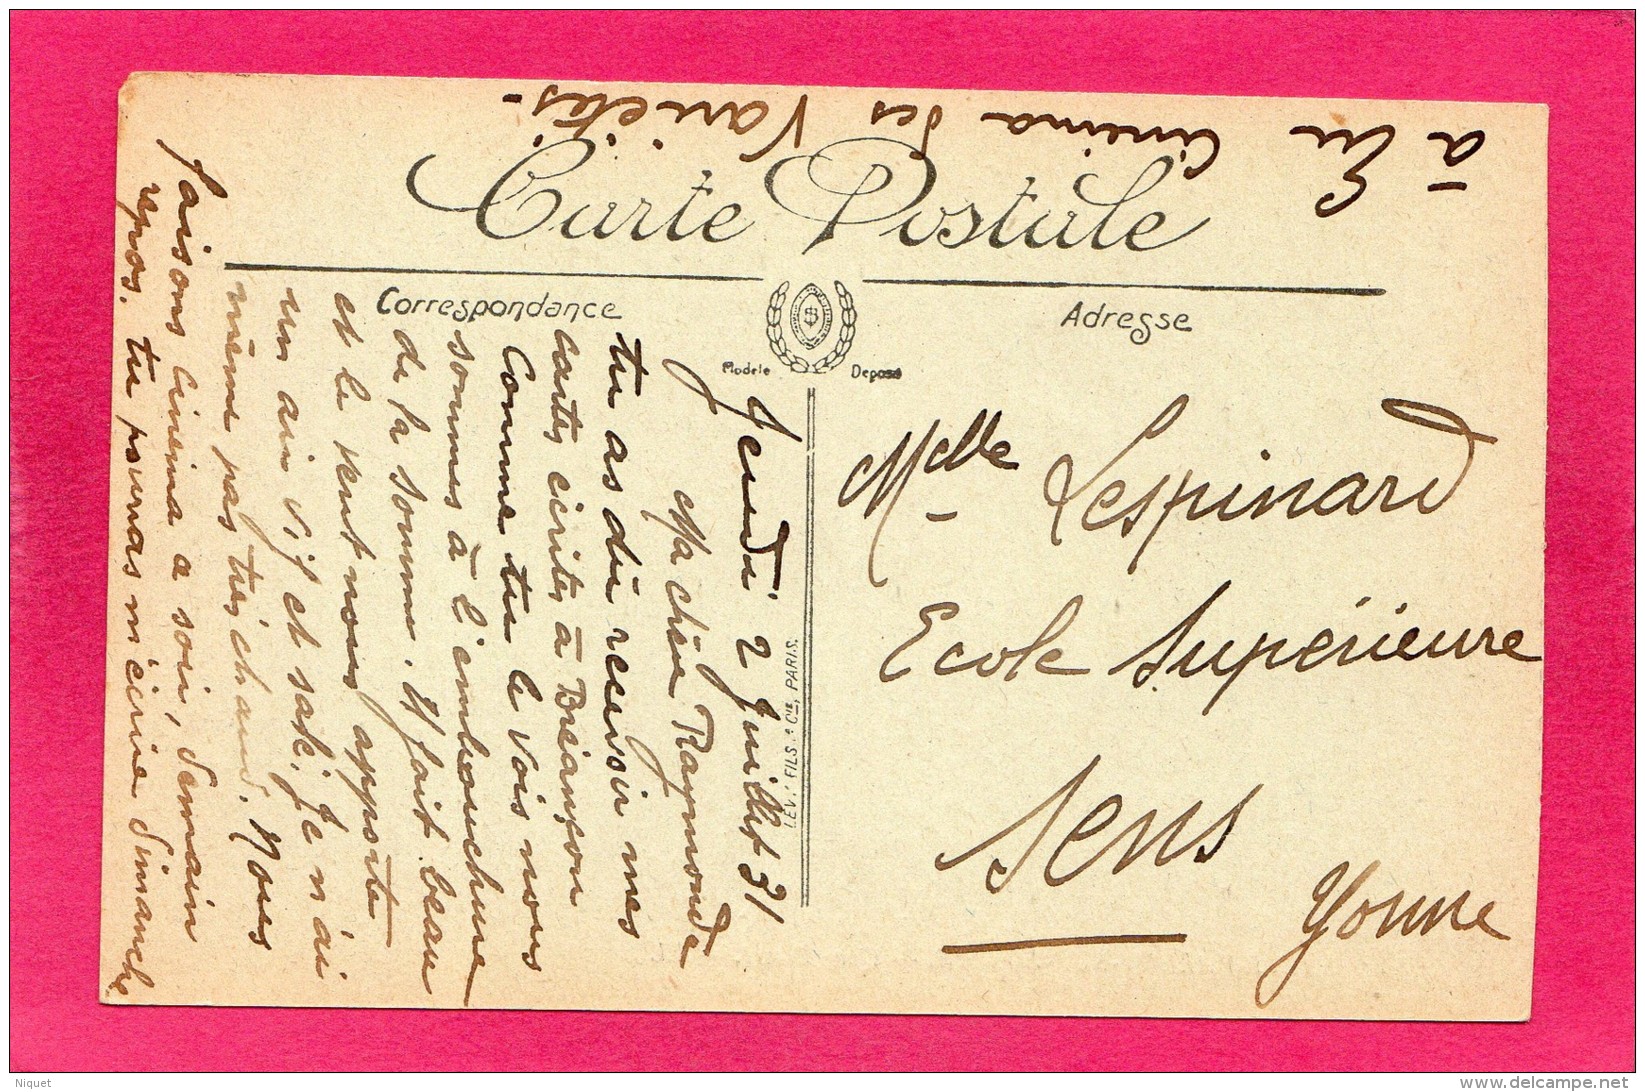 Carte Postale
Correspondance
Adresse
Modele Deposé
LEVY FILS & Cie, PARIS.
Jeudi 2 Juillet 31
Ma chère Raymonde
tu as dû recevoir mes
cartes écrites à Briançon
Comme tu le vois nous
sommes à l'embouchure
de la Somme. Il fait beau
et le vent nous apporte
un air vif et salé. Je n'ai
même pas très chaud. Nous
faisons cinéma ce soir, demain
repos. tu pourras m'écrire dimanche
à Eu Cinéma des Variétés.
Melle Lespinard
Ecole Supérieure
Sens
Yonne
Niquet
delcampe.net